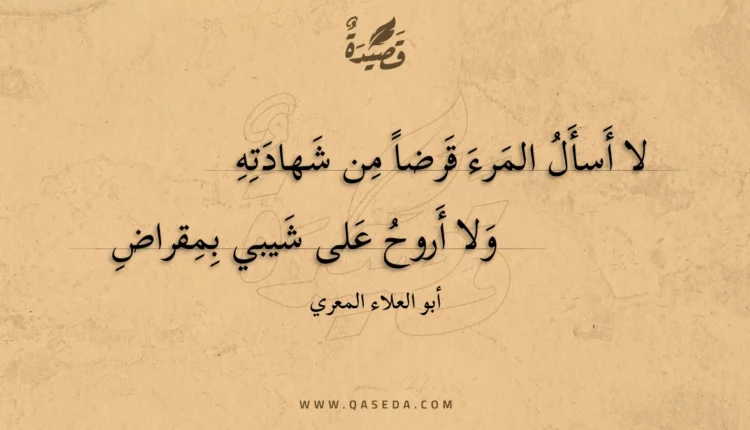 قَصِيدَةٌ
لا أَسأَلُ المَرءَ قَرضاً مِن شَهادَتِهِ
وَلا أَروحُ عَلى شَيبي بِمِقراضِ
أبو العلاء المعري
WWW.QASEDA.COM